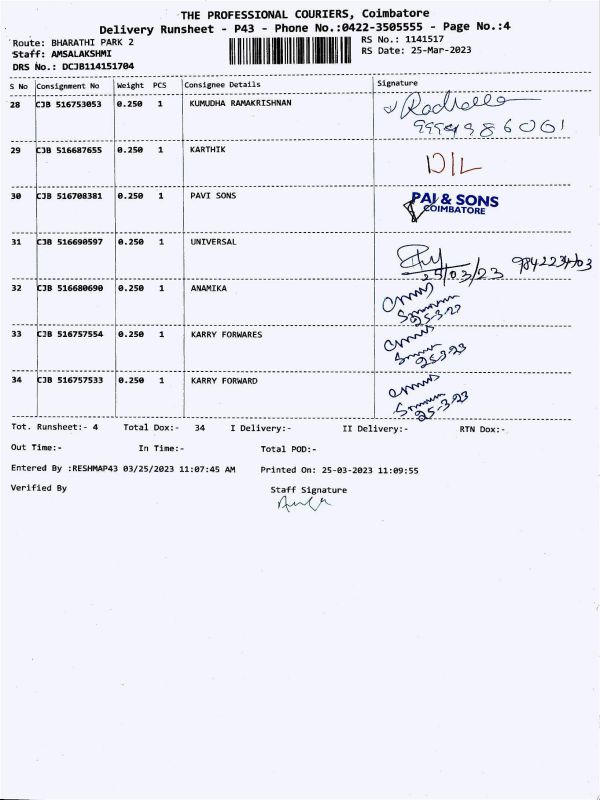 THE PROFESSIONAL COURIERS, Coimbatore
Delivery Runsheet - P43 - Phone No.:0422-3505555 - Page No.:4
Route: BHARATHI PARK 2
RS No.: 1141517
Staff: AMSALAKSHMI
RS Date: 25-Mar-2023
DRS No.: DCJB114151704
S No Consignment No Weight PCS Consignee Details Signature
28 CJB 516753053 0.250 1 KUMUDHA RAMAKRISHNAN
9994986001
29 CJB 516687655 0.250 1 KARTHIK D/L
30 CJB 516708381 0.250 1 PAVI SONS PAI & SONS
COIMBATORE
31 CJB 516690597 0.250 1 UNIVERSAL
25/03/23
32 CJB 516680690 0.250 1 ANAMIKA
25-3-23
33 CJB 516757554 0.250 1 KARRY FORWARES
25-3-23
34 CJB 516757533 0.250 1 KARRY FORWARD
25-3-23
Tot. Runsheet:- 4 Total Dox:- 34 I Delivery:- II Delivery:- RTN Dox:-
Out Time:- In Time:- Total POD:-
Entered By :RESHMAP43 03/25/2023 11:07:45 AM Printed On: 25-03-2023 11:09:55
Verified By Staff Signature